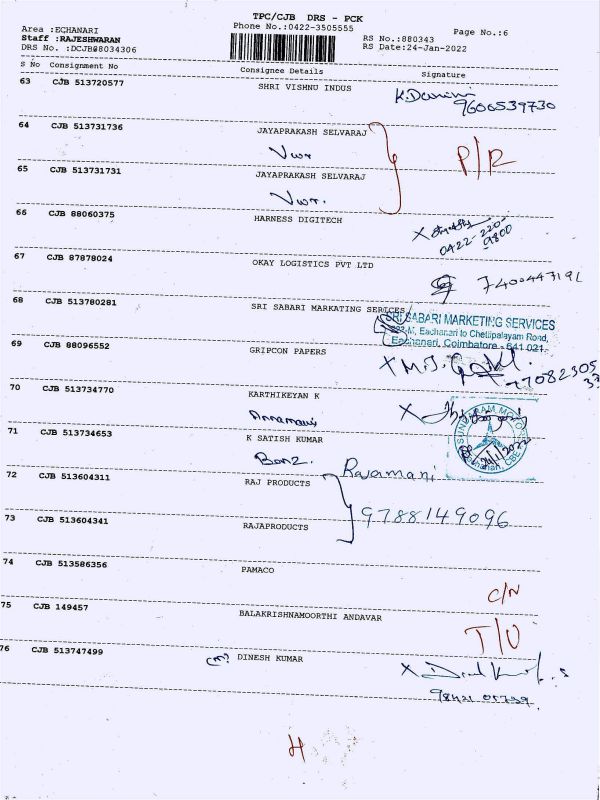 TPC/CJB DRS - PCK
Area :ECHANARI
Phone No.:0422-3505555
Page No.:6
Staff :RAJESHWARAN
RS No.:880343
DRS No. :DCJB08034306
RS Date:24-Jan-2022
S No Consignment No Consignee Details Signature
63 CJB 513720577 SHRI VISHNU INDUS
9600539730
64 CJB 513731736 JAYAPRAKASH SELVARAJ
P/R
65 CJB 513731731 JAYAPRAKASH SELVARAJ
66 CJB 88060375 HARNESS DIGITECH
0422-220-9800
67 CJB 87878024 OKAY LOGISTICS PVT LTD
7400447191
68 CJB 513780281 SRI SABARI MARKATING SERICES
SRI SABARI MARKETING SERVICES
Eachanari to Chettipalayam Road,
Eachanari, Coimbatore - 641 021.
69 CJB 88096552 GRIPCON PAPERS
70 CJB 513734770 KARTHIKEYAN K
71 CJB 513734653 K SATISH KUMAR
72 CJB 513604311 RAJ PRODUCTS
Rajamani
9788149096
73 CJB 513604341 RAJAPRODUCTS
74 CJB 513586356 PAMACO
C/N
75 CJB 149457 BALAKRISHNAMOORTHI ANDAVAR
T/U
76 CJB 513747499 DINESH KUMAR
98421 05729
H